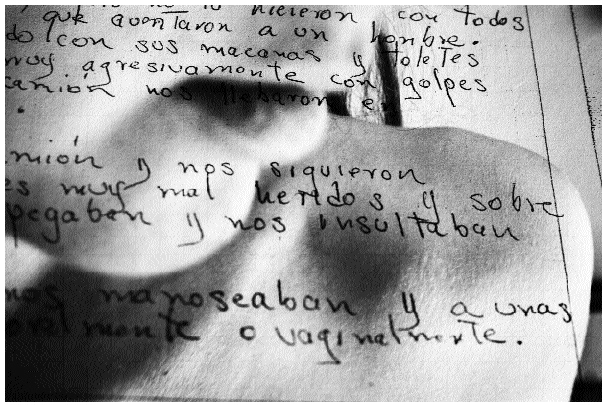 lo hicieron con todos
que aventaron a un hombre.
do con sus macanas y toletes
muy agresivamente con golpes
camión nos llebaron e
mión y nos siguieron
es muy mal heridos y sobre
pegaban y nos insultaban
nos manoseaban y a unas
oralmente o vaginalmente.